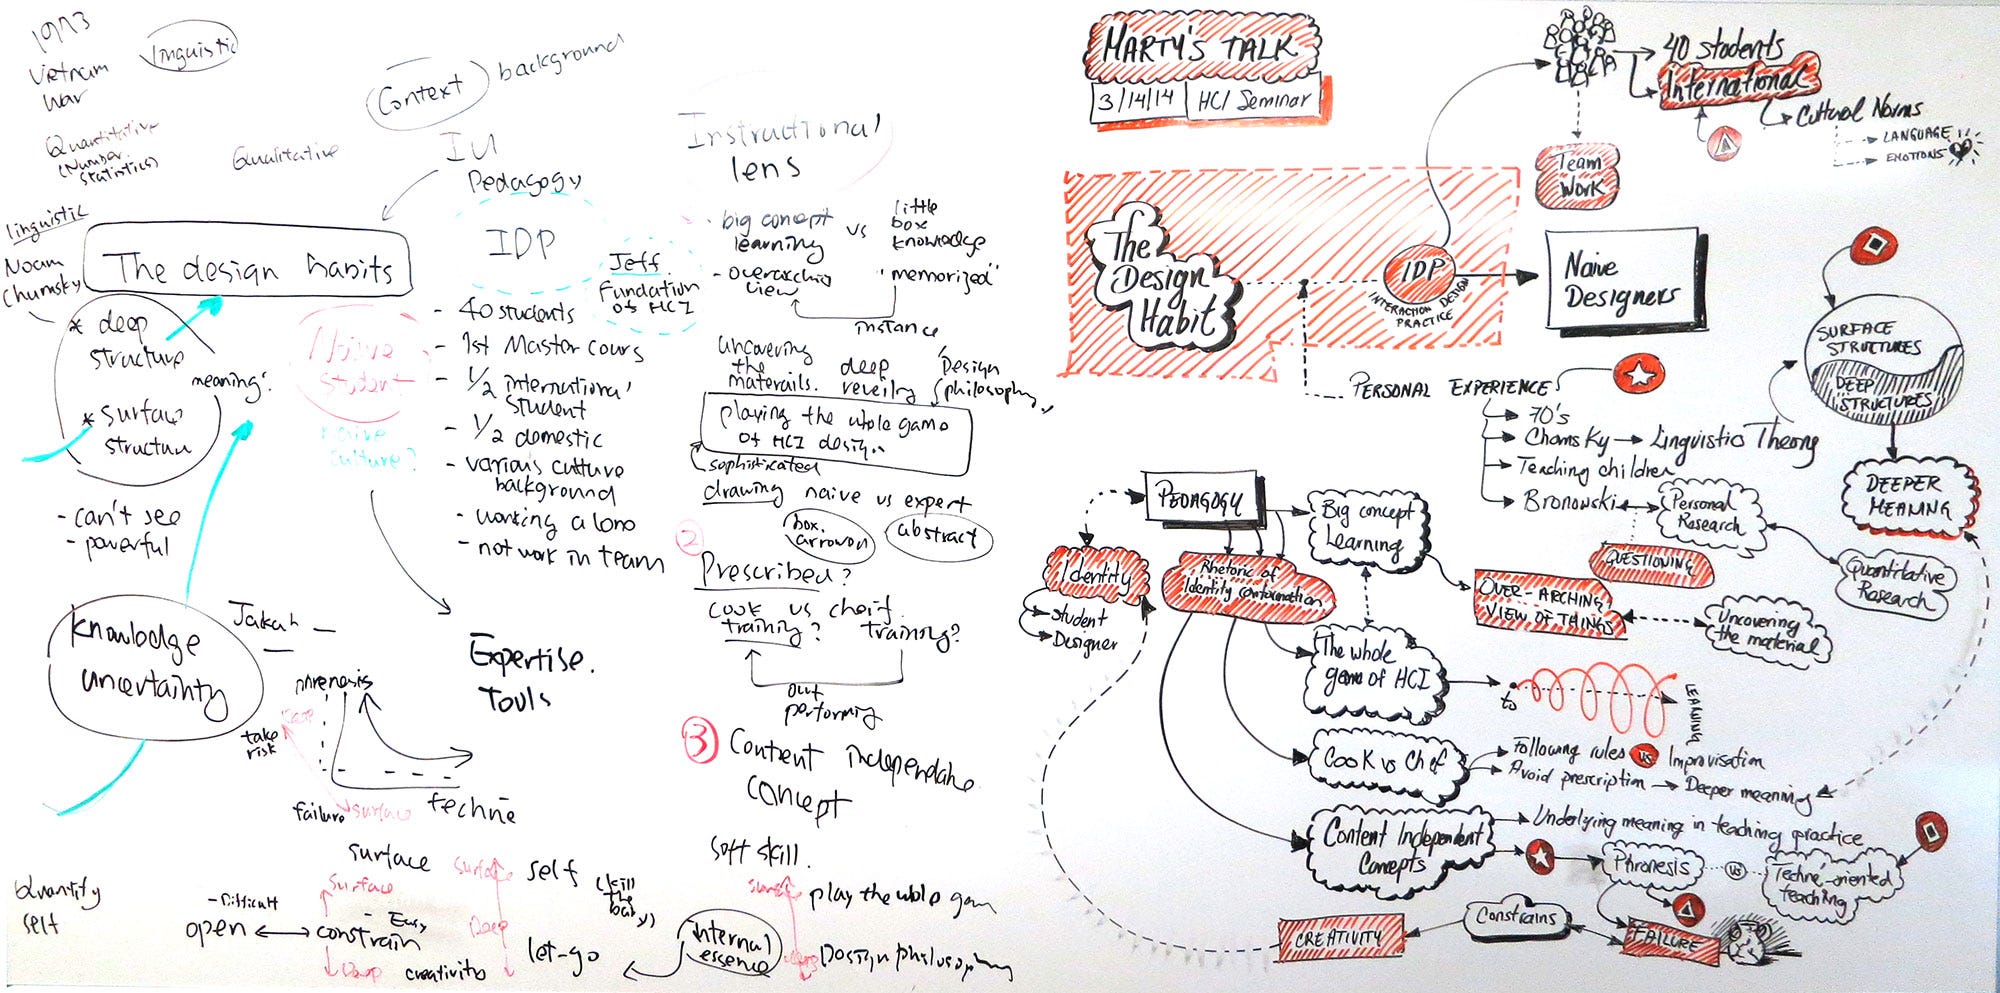 1973
Vietnam
War
linguistic
Quantitative
(Number
Statistics)
Qualitative
Context
background
IU
Pedagogy
IDP
Jeff
Fundation
of HCI
linguistic
Noam
Chumsky
The design habits
* deep
structure
* surface
structure
meaning?
- can't see
- powerful
Naive
Student
naive
culture?
- 40 students
- 1st Master cours
- 1/2 international
student
- 1/2 domestic
- various culture
background
- working alone
- not work in team
Expertise.
Touls
knowledge
uncertainty
phrenesis
take
risk
failure
surface
techne
Quantity
self
- Difficult
open
surface
surface
- Easy
constrain
Deep
creativitio
surface
Deep
self
(kill
the
baby)
let-go
internal
essence
Instructional
lens
- big concept
learning
vs
little
box
knowledge
- overarchio
view
"memorized"
instance
uncovering
the
materails.
deep
reveilry
Design
philosophy
playing the whole game
of HCI desig..
sophisticated
drawing naive vs expert
box.
arrowon
abstract
2
Prescribed?
cook vs cheif
training? training?
out
performing
3
Content independane
concept
soft skill.
play the whole gam
Design philusophy
MARTY'S TALK
3/14/14 HCI Seminar
40 students
International
Cultural Norms
LANGUAGE
EMOTIONS
Team
Work
The
Design
Habit
IDP
INTERACTION DESIGN
PRACTICE
Naive
Designers
PERSONAL EXPERIENCE
70's
Chomsky
Linguistic Theory
Teaching children
Bronowski
Personal
Research
QUESTIONING
Quantitative
Research
SURFACE
STRUCTURES
DEEP
STRUCTURES
DEEPER
MEANING
PEDAGOGY
Identity
Student
Designer
Rhetoric of
Identity conformation
Big concept
Learning
OVER-ARCHING
VIEW OF THINGS
Uncovering
the material
The whole
game of HCI
to
LEARNING
Cook vs Chef
Following rules vs Improvisation
Avoid prescription
Deeper meaning
Content Independent
Concepts
Underlying meaning in teaching practice
Phronesis
vs
Techne-oriented
teaching
CREATIVITY
Constrains
FAILURE